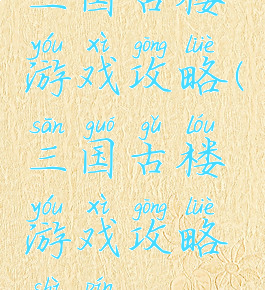 三国古楼
yóu xì gōng lüè
游戏攻略(
sān guó gǔ lóu
三国古楼
yóu xì gōng lüè
游戏攻略
shì pín